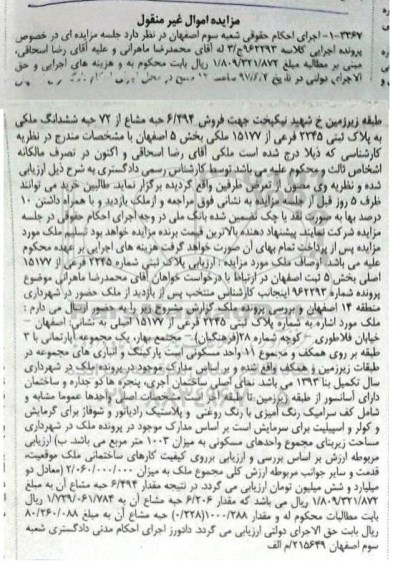 مزایده اموال غیر منقول
۱-۳۳۶۷- اجرای احکام حقوقی شعبه سوم اصفهان در نظر دارد جلسه مزایده ای در خصوص
پرونده اجرایی کلاسه ۹۶۲۲۹۳ج/۳ له آقای محمدرضا ماهرانی و علیه آقای رضا اسحاقی،
مبنی بر مطالبه مبلغ ۱/۸۰۹/۳۲۱/۸۷۲ ریال بابت محکوم به و هزینه های اجرایی و حق
الاجرای دولتی در تاریخ ۹۷/۶/۷ ساعت
طبقه زیرزمین خ شهید نیکبخت جهت فروش ۶/۴۹۴ حبه مشاع از ۷۲ حبه ششدانگ ملکی
به پلاک ثبتی ۲۲۴۵ فرعی از ۱۵۱۷۷ ملکی بخش ۵ اصفهان با مشخصات مندرج در نظریه
کارشناسی که ذیلا درج شده است ملکی آقای رضا اسحاقی و اکنون در تصرف مالکانه
اشخاص ثالث و محکوم علیه می باشد توسط کارشناس رسمی دادگستری به شرح ذیل ارزیابی
شده و نظریه وی مصون از تعرض طرفین واقع گردیده برگزار نماید. طالبین خرید می توانند
ظرف ۵ روز قبل از جلسه مزایده به نشانی فوق مراجعه و ازملک بازدید و با همراه داشتن ۱۰
درصد بها به صورت نقد یا چک تضمین شده بانک ملی در وجه اجرای احکام حقوقی در جلسه
مزایده شرکت نمایند. پیشنهاد دهنده بالاترین قیمت برنده مزایده خواهد بود تسلیم ملک مورد
مزایده پس از پرداخت تمام بهای آن صورت خواهد گرفت هزینه های اجرایی بر عهده محکوم
علیه می باشد. اوصاف ملک مورد مزایده : ارزیابی پلاک ثبتی شماره ۲۲۴۵ فرعی از ۱۵۱۷۷
اصلی بخش ۵ ثبت اصفهان در ارتباط با درخواست خواهان آقای محمدرضا ماهرانی موضوع
پرونده شماره ۹۶۲۲۹۳ اینجانب کارشناس منتخب پس از بازدید از ملک حضور در شهرداری
منطقه ۱۴ اصفهان و بررسی پرونده ملک گزارش مشروح زیر را به حضور ارسال می دارم :
ملک مورد اشاره به شماره پلاک ثبتی ۲۲۴۵ فرعی از ۱۵۱۷۷ اصلی به نشانی: اصفهان –
خیابان فلاطوری – کوچه شماره ۲۸(فرهنگیان) – مجتمع بهار، یک مجموعه آپارتمانی با ۳
طبقه بر روی همکف و مجموع ۱۱ واحد مسکونی است پارکینگ و انباری های مجموعه در
طبقات زیرزمین و همکف واقع شده و بر اساس مدارک موجود در پرونده ملک در شهرداری
سال تکمیل بنا ۱۳۹۳ می باشد. نمای اصلی ساختمان آجری، پنجره ها دو جداره و ساختمان
دارای آسانسور از طبقه زیرزمین تا طبقه آخر است مشخصات اصلی واحدها عموما مشابه و
شامل کف سرامیک رنگ آمیزی با رنگ روغنی و پلاستیک رادیاتور و شوفاژ برای گرمایش
و کولر و اسپیلیت برای سرمایش است بر اساس مدارک موجود در پرونده ملک در شهرداری
مساحت زیربنای مجموع واحدهای مسکونی به میزان ۱۰۰۳ متر مربع می باشد. ب) ارزیابی
مربوطه ارزش بر اساس بررسی و ارزیابی برروی کیفیت کارهای ساختمانی ملک موقعیت،
قدمت و سایر جوانب مربوطه ارزش کلی مجموع ملک به میزان ۲/۰۶۰/۰۰۰/۰۰۰ (معادل دو
میلیارد و شش میلیون تومان ارزیابی می گردد. در نتیجه مقدار ۶/۴۹۴ حبه مشاع آن به مبلغ
۱/۸۰۹/۳۲۱/۸۷۲ ریال می باشد که مقدار ۶/۲۰۶ حبه مشاع آن به ۱/۷۲۹/۰۶۱/۷۸۴ ریال
بابت مطالبات محکوم له و مقدار ۱۰۰۰/۲۸۸(۰/۲۲۸) حبه مشاع آن به مبلغ ۸۰/۲۶۰/۰۸۸
ریال بابت حق الاجرای دولتی ارزیابی می گردد. دادورز اجرای احکام مدنی دادگستری شعبه
سوم اصفهان ۲۱۵۶۴۹/م الف